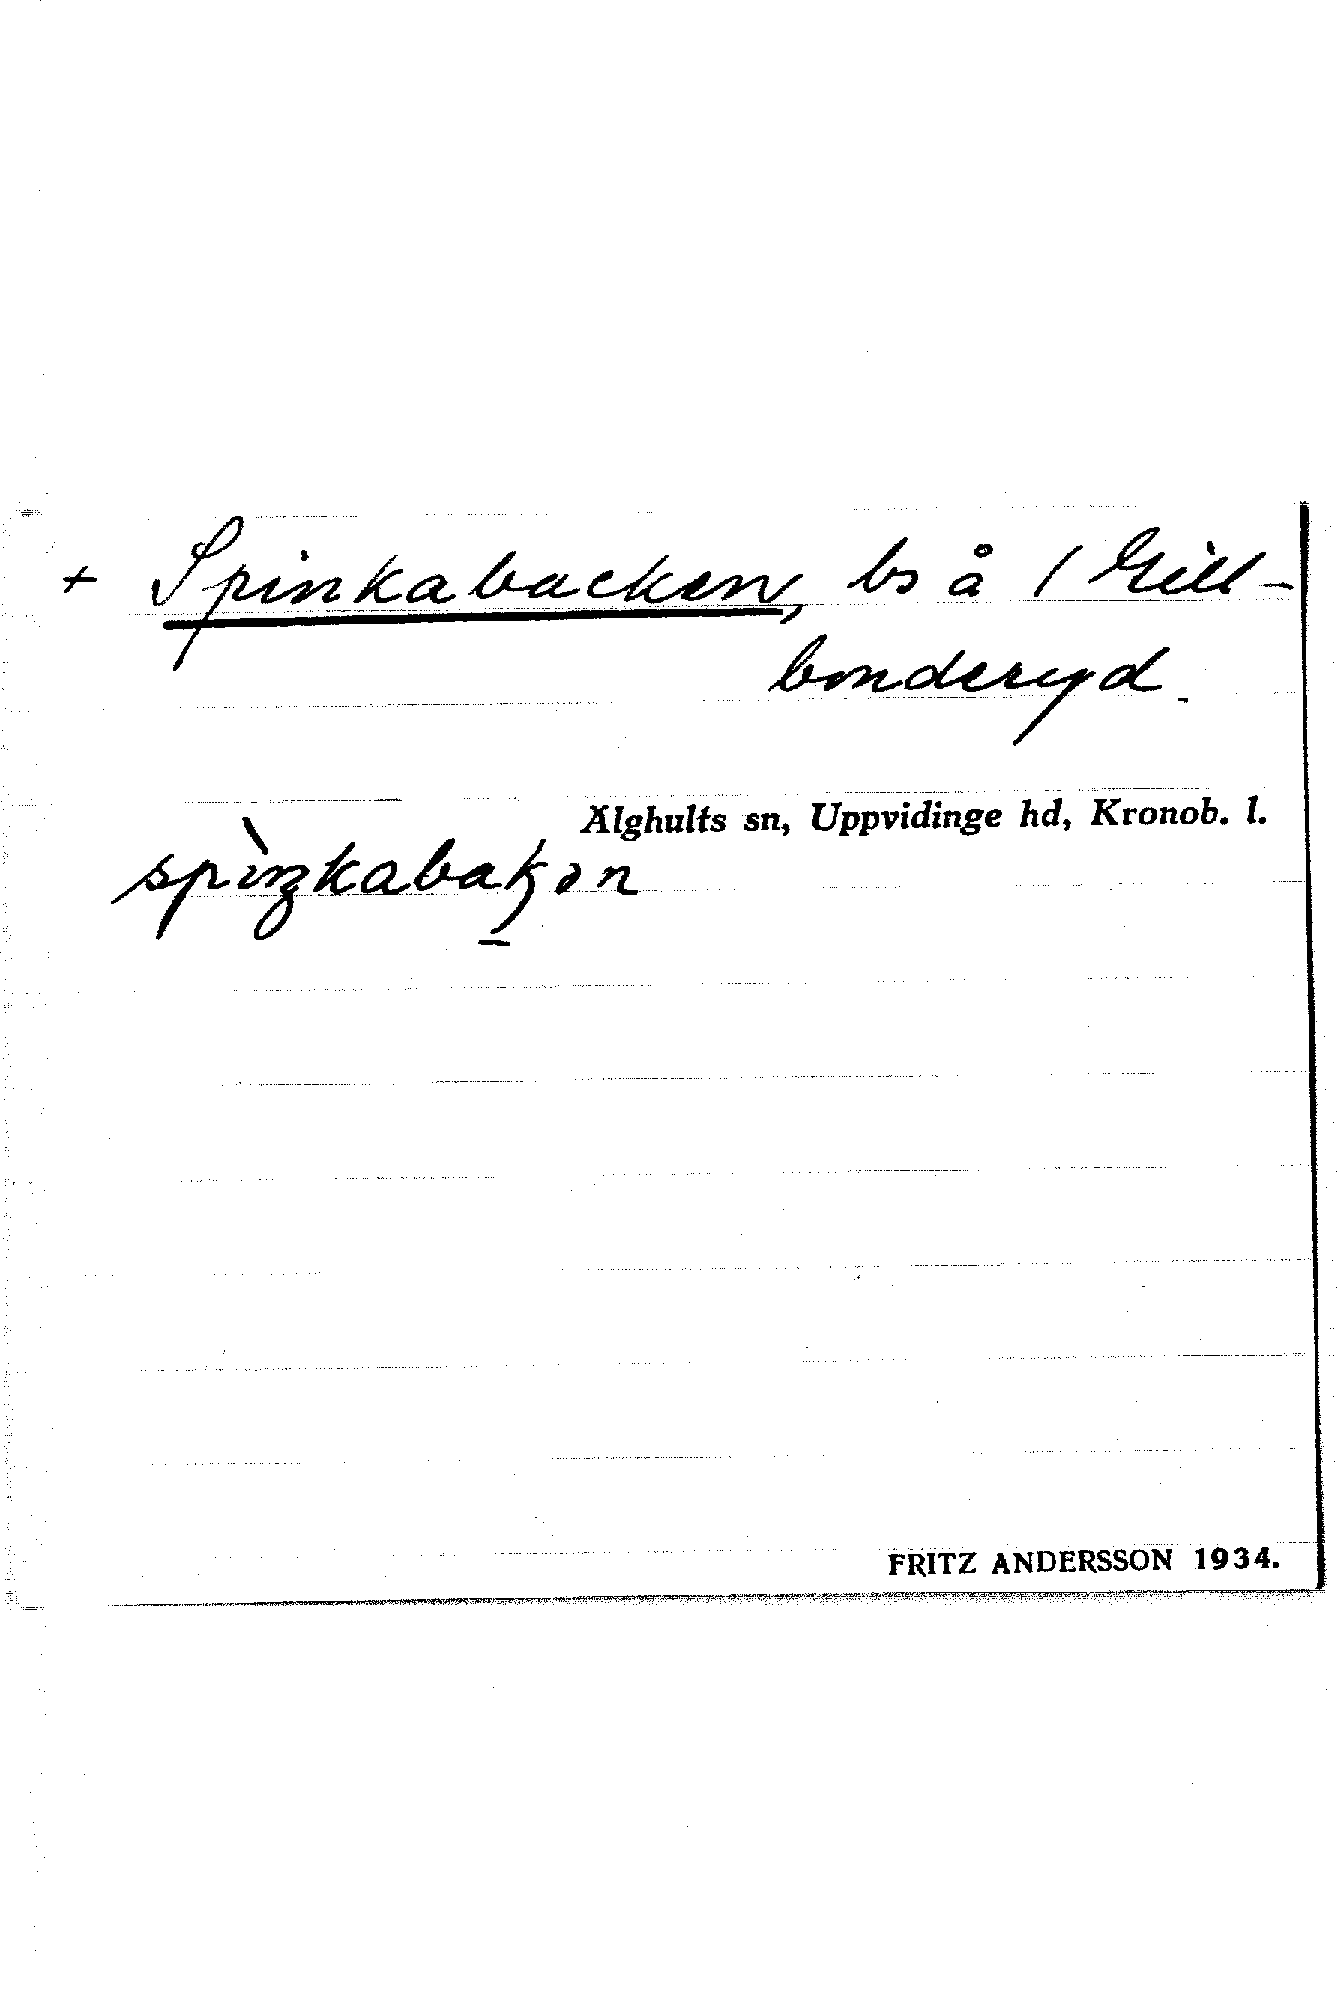 + Spinkabacken, bs å 1 Gill-
bonderyd.
Älghults sn, Uppvidinge hd, Kronob. l.
spìŋkabaꞣən
FRITZ ANDERSSON 1934.